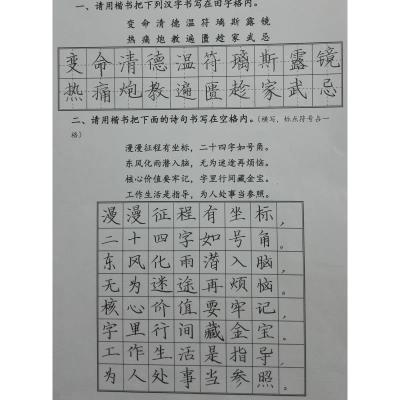 一、请用楷书把下列汉字书写在田字格内。
变命清德温符璃斯露镜
热痛炮教遍匮趁家武忌
变命清德温符璃斯露镜
热痛炮教遍匮趁家武忌
二、请用楷书把下面的诗句书写在空格内。（横写，标点符号占一
格）
漫漫征程有坐标，二十四字如号角。
东风化雨潜入脑，无为迷途再烦恼。
核心价值要牢记，字里行间藏金宝。
工作生活是指导，为人处事当参照。
漫漫征程有坐标，
二十四字如号角。
东风化雨潜入脑，
无为迷途再烦恼。
核心价值要牢记，
字里行间藏金宝。
工作生活是指导，
为人处事当参照。